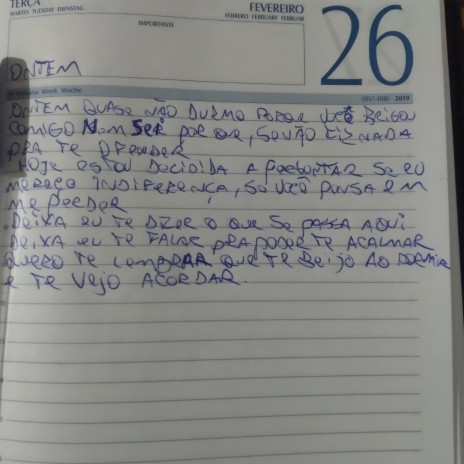 TERÇA
MARTES TUESDAY DIENSTAG
IMPORTANTE
FEVEREIRO
FEBRERO FEBRUARY FEBRUAR
26
ONTEM
Week Woche
(057-308) - 2019
ONTEM QUASE NÃO DURMO PORQUE VOCÊ BRIGOU
COMIGO NEM SEI POR QUE, SE NÃO FIZ NADA
PRA TE OFENDER
HOJE ESTOU DECIDIDA A PERGUNTAR SE EU
MEREÇO INDIFERENÇA, SÓ VOCÊ PENSA EM
ME PERDER
DEIXA EU TE DIZER O QUE SE PASSA AQUI
DEIXA EU TE FALAR PRA PODER TE ACALMAR
QUERO TE LEMBRAR QUE TE BEIJO AO DORMIR
E TE VEJO ACORDAR.